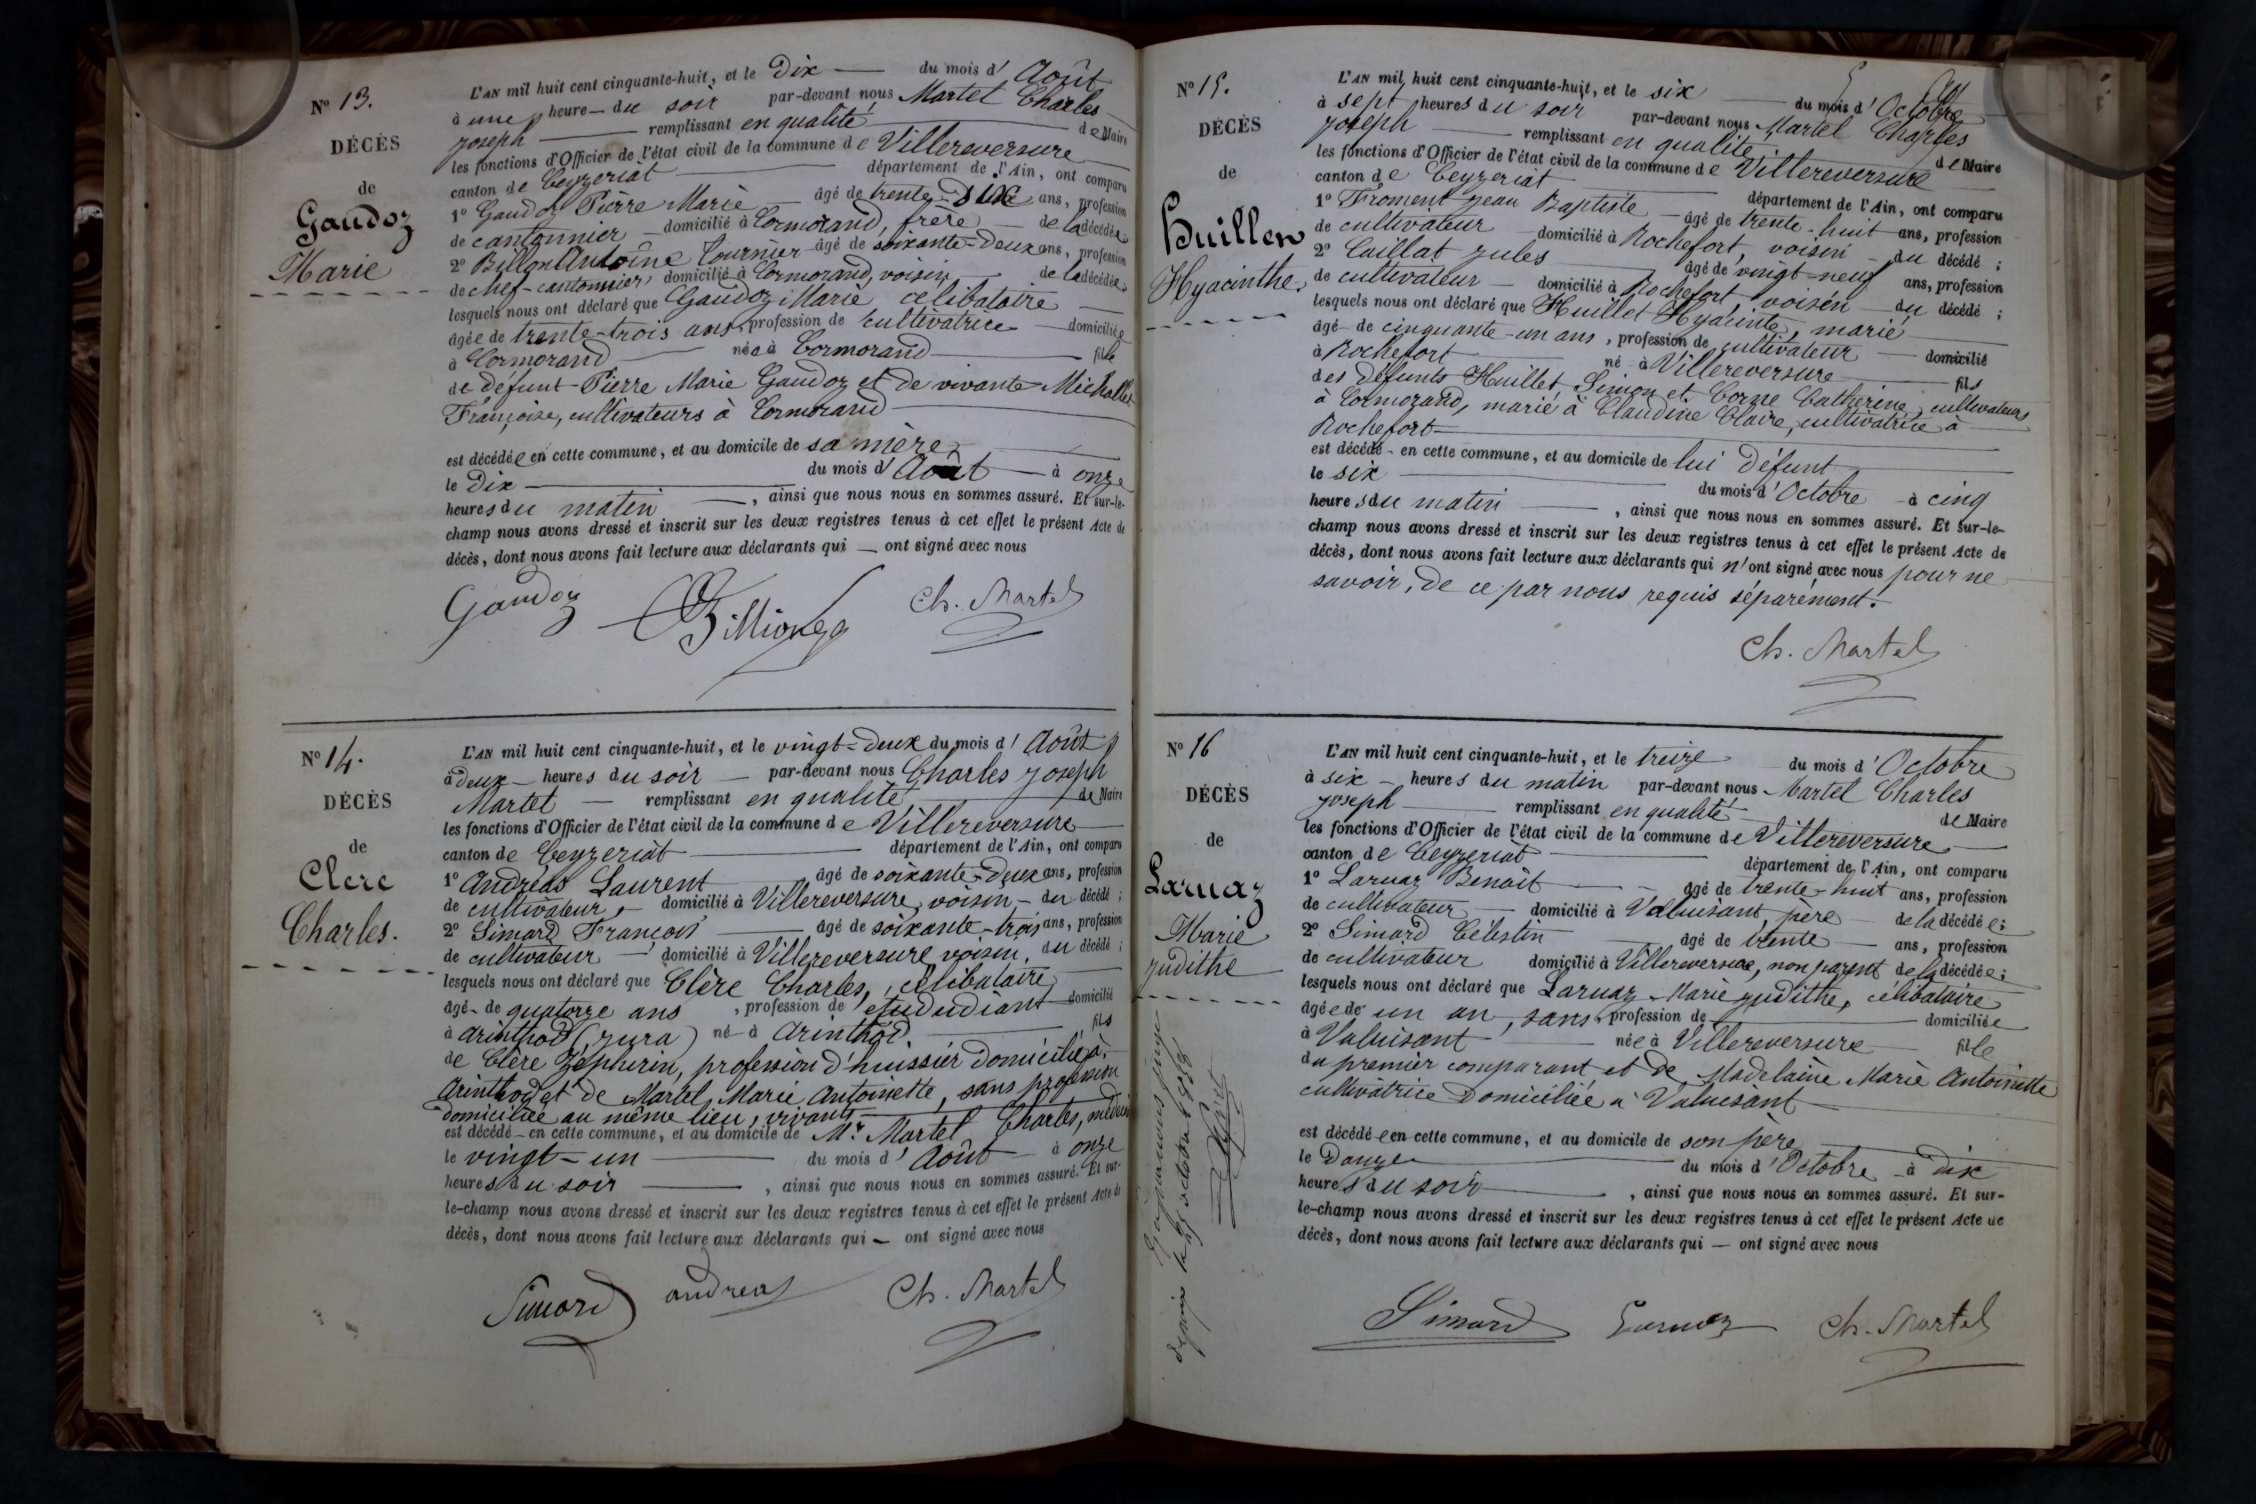 N° 13.
DÉCÈS
de
Gaudoz
Marie
L'AN mil huit cent cinquante-huit, et le Dix du mois d'Août
à une heure du soir par-devant nous Martel Charles
joseph remplissant en qualité de Maire
les fonctions d'Officier de l'état civil de la commune de Villereversure
canton de Ceyzeriat département de l'Ain, ont comparu
1° Gaudoz Pierre Marie âgé de trente-six ans, profession
de cantonnier domicilié à Cormorand, frère de la décédée
2° Billon Antoine Tournier âgé de soixante-deux ans, profession
de chef-cantonnier, domicilié à Cormorand, voisin de la décédée
lesquels nous ont déclaré que Gaudoz Marie célibataire
âgée de trente-trois ans, profession de cultivatrice domiciliée
à Cormorand née à Cormorand fille
de défunt Pierre Marie Gaudoz et de vivante Michallet
Françoise, cultivateurs à Cormorand
est décédée en cette commune, et au domicile de sa mère
le Dix du mois d'Août à onze
heures du matin, ainsi que nous nous en sommes assuré. Et sur-le-
champ nous avons dressé et inscrit sur les deux registres tenus à cet effet le présent Acte de
décès, dont nous avons fait lecture aux déclarants qui — ont signé avec nous
Gaudoz Ch. Martel
N° 14.
DÉCÈS
de
Clere
Charles.
L'AN mil huit cent cinquante-huit, et le vingt-deux du mois d'Août
à deux heures du soir par-devant nous Charles joseph
Martel remplissant en qualité de Maire
les fonctions d'Officier de l'état civil de la commune de Villereversure
canton de Ceyzeriat département de l'Ain, ont comparu
1° Andréas Laurent âgé de soixante-deux ans, profession
de cultivateur, domicilié à Villereversure, voisin du décédé ;
2° Simard François âgé de soixante-trois ans, profession
de cultivateur domicilié à Villereversure, voisin, du décédé ;
lesquels nous ont déclaré que Clère Charles, célibataire
âgé de quatorze ans, profession de etududiant domicilié
à arinthod (jura) né à arinthod. fils
de Clère Zéphirin, profession d'huissier domicilié à
arinthod et de Martel Marie Antoinette, sans profession
domiciliée au même lieu, vivants
est décédé en cette commune, et au domicile de Mr. Martel Charles, médecin
le vingt-un du mois d'Août à onze
heures du soir, ainsi que nous nous en sommes assuré. Et sur-
le-champ nous avons dressé et inscrit sur les deux registres tenus à cet effet le présent Acte de
décès, dont nous avons fait lecture aux déclarants qui — ont signé avec nous
Simard andreas Ch. Martel
N° 15.
DÉCÈS
de
Huillen
Hyacinthe.
L'AN mil huit cent cinquante-huit, et le six du mois d'Octobre
à sept heures du soir par-devant nous Martel Charles
joseph remplissant en qualité de Maire
les fonctions d'Officier de l'état civil de la commune de Villereversure
canton de Ceyzeriat département de l'Ain, ont comparu
1° Froment jean Baptiste âgé de trente-huit ans, profession
de cultivateur domicilié à Rochefort, voisin du décédé ;
2° Caillat jules âgé de vingt-neuf ans, profession
de cultivateur domicilié à Rochefort, voisin du décédé ;
lesquels nous ont déclaré que Huillet Hyacinte, marié
âgé de cinquante-un ans, profession de cultivateur domicilié
à Rochefort né à Villereversure fils
des défunts Huillet Simon et Corne Catherine, cultivateurs
à Cormorand, marié à Claudine Claire, cultivatrice à
Rochefort
est décédé en cette commune, et au domicile de lui défunt
le six du mois d'Octobre à cinq
heures du matin, ainsi que nous nous en sommes assuré. Et sur-le-
champ nous avons dressé et inscrit sur les deux registres tenus à cet effet le présent Acte de
décès, dont nous avons fait lecture aux déclarants qui n'ont signé avec nous pour ne
savoir, de ce par nous requis séparément.
Ch. Martel
N° 16
DÉCÈS
de
Laruaz
Marie
judithe
L'AN mil huit cent cinquante-huit, et le treize du mois d'Octobre
à six heures du matin par-devant nous Martel Charles
joseph remplissant en qualité de Maire
les fonctions d'Officier de l'état civil de la commune de Villereversure
canton de Ceyzeriat département de l'Ain, ont comparu
1° Laruaz Benoît âgé de trente-huit ans, profession
de cultivateur domicilié à Valuisant, père de la décédée ;
2° Simard Célestin âgé de trente ans, profession
de cultivateur domicilié à Villereversure, non parent de la décédée ;
lesquels nous ont déclaré que Laruaz Marie judithe, célibataire
âgée de un an, sans profession de domiciliée
à Valuisant née à Villereversure fille
du premier comparant et de Madelaine Marie Antoinette
cultivatrice domiciliée à Valuisant
est décédée en cette commune, et au domicile de son père
le Douze du mois d'Octobre à dix
heures du soir, ainsi que nous nous en sommes assuré. Et sur-
le-champ nous avons dressé et inscrit sur les deux registres tenus à cet effet le présent Acte de
décès, dont nous avons fait lecture aux déclarants qui — ont signé avec nous
Simard Laruaz Ch. Martel